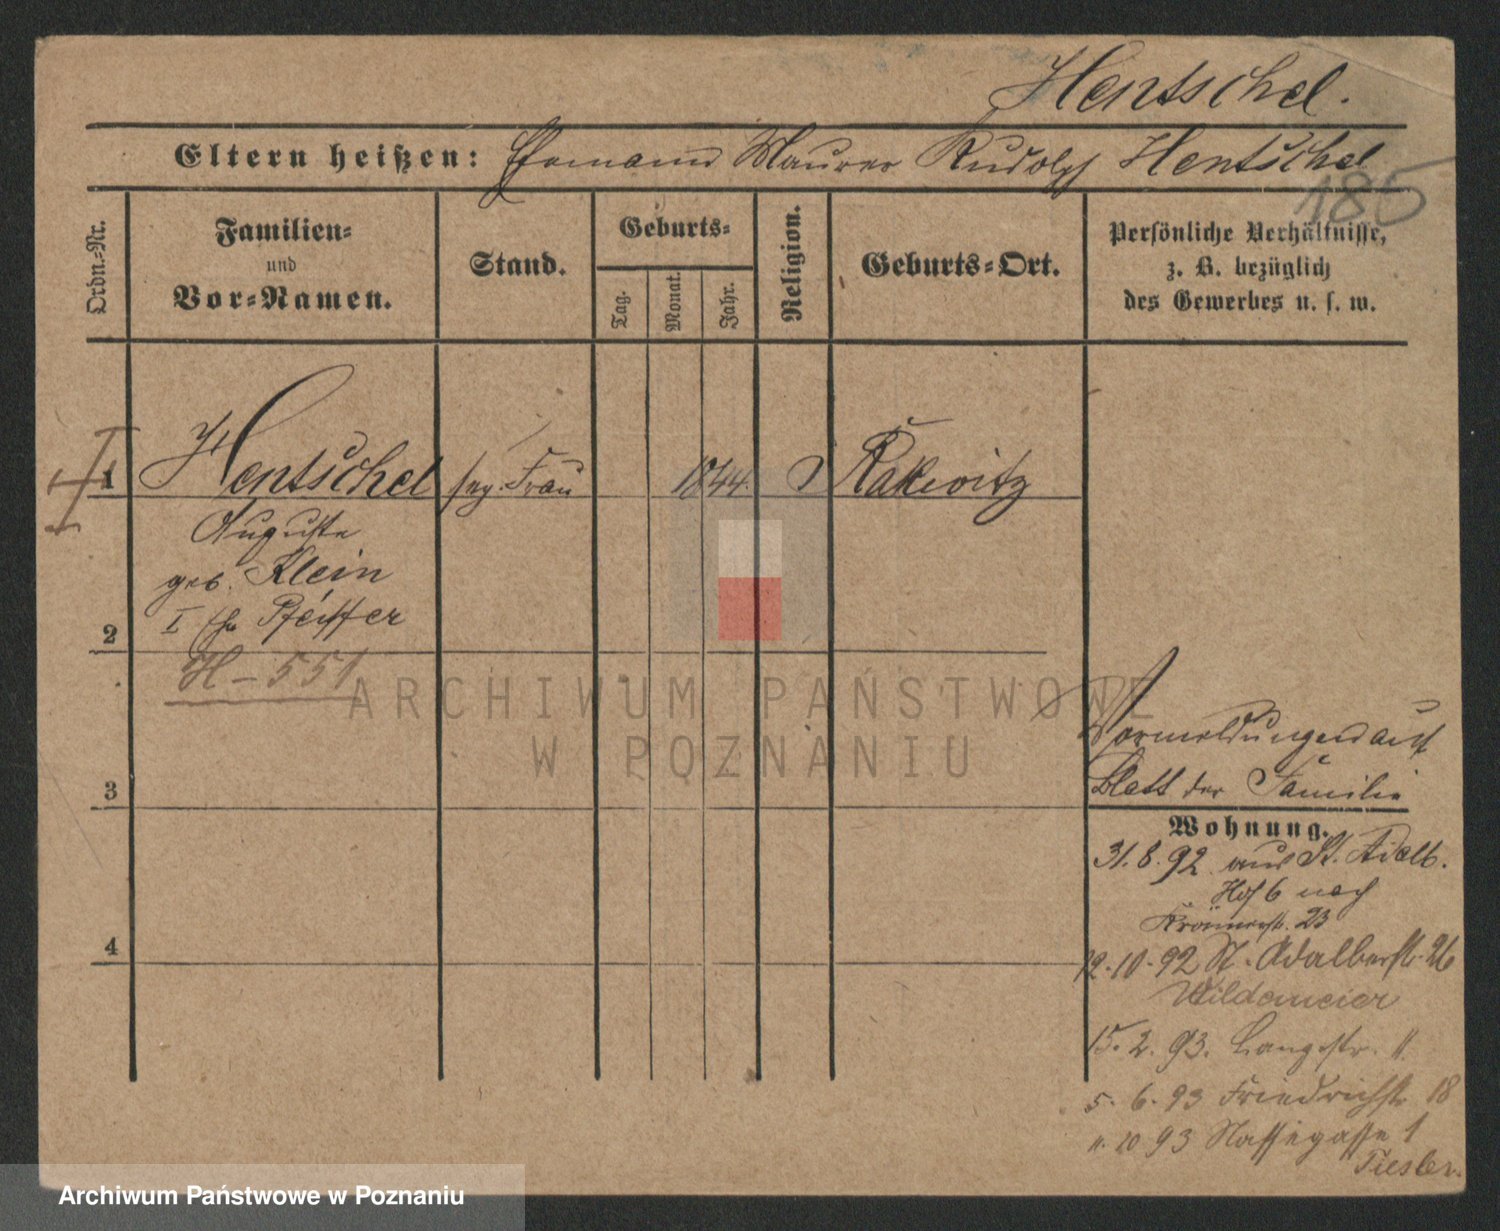 Hentschel.
Eltern heißen: Ehemann Maurer Rudolph Hentschel
185
Ordn.-Nr.
Familien-
und
Vor-Namen.
Stand.
Geburts-
Tag.
Monat.
Jahr.
Religion.
Geburts-Ort.
Persönliche Verhältnisse,
z. B. bezüglich
des Gewerbes u. s. w.
I
1 Hentschel sep. Frau 1844. Rakwitz
Auguste
geb. Klein
I Ehe Pfeiffer
2
H-551
ARCHIWUM PAŃSTWOWE
W POZNANIU
Vormeldungen auf
Blatt der Familie
3
Wohnung.
31.8.92 aus St. Adelb.
Hof 6 nach
23
4
12.10.92 St. Adalbertstr. 26
Wildemeier
15.2.93. Langestr. 11
5.6.93 Friedrichstr 18
10 93 Nassegasse 1
Tiesler.
Archiwum Państwowe w Poznaniu